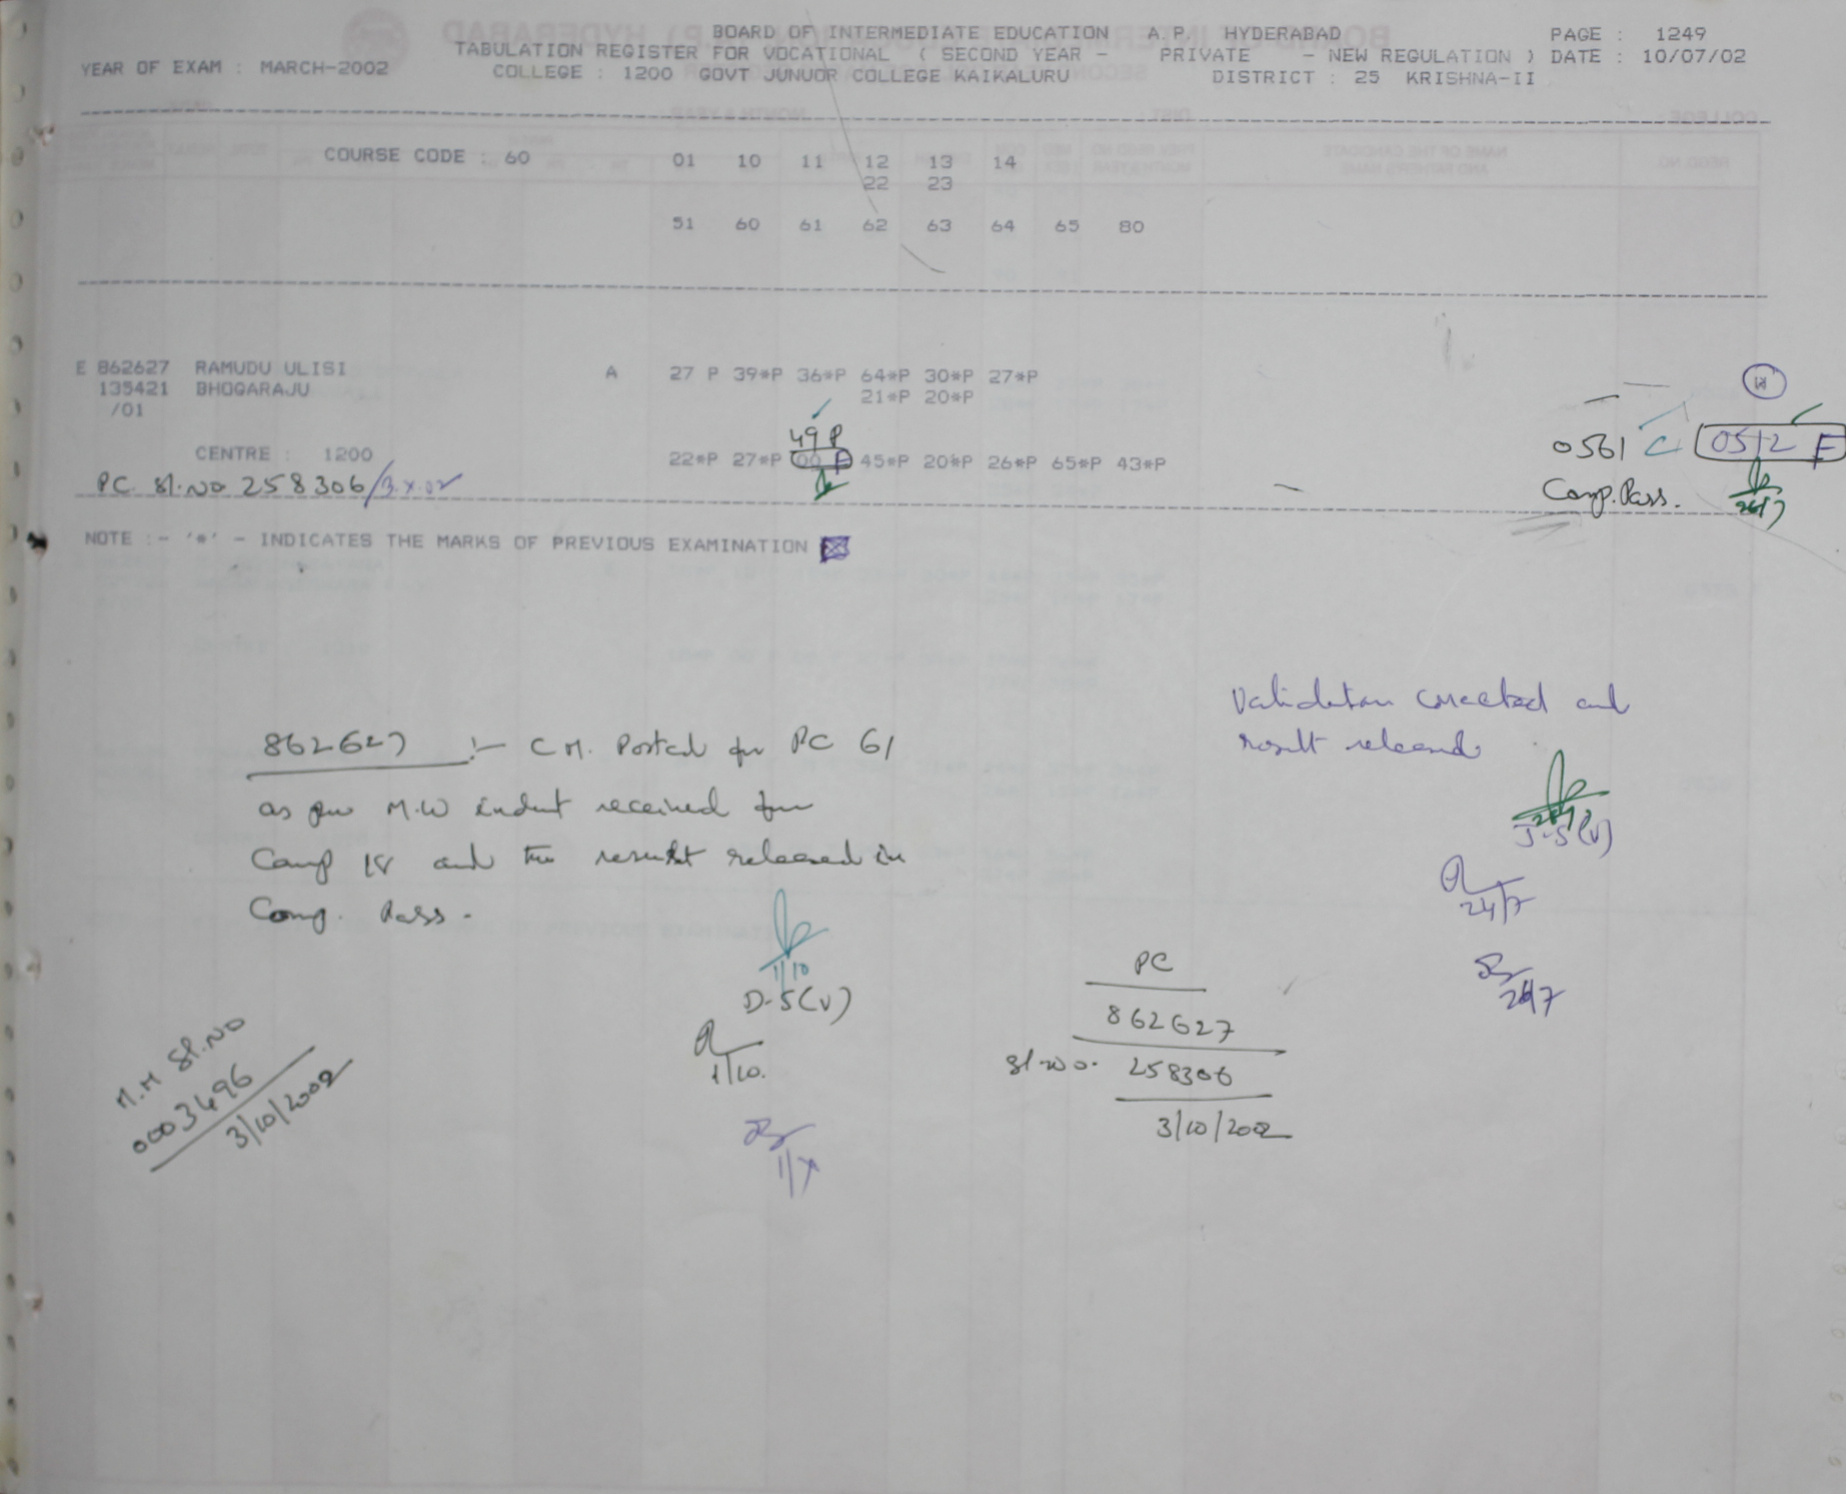 BOARD OF INTERMEDIATE EDUCATION A.P. HYDERABAD PAGE : 1249
TABULATION REGISTER FOR VOCATIONAL ( SECOND YEAR - PRIVATE - NEW REGULATION ) DATE : 10/07/02
YEAR OF EXAM : MARCH-2002 COLLEGE : 1200 GOVT JUNUOR COLLEGE KAIKALURU DISTRICT : 25 KRISHNA-II
COURSE CODE : 60 01 10 11 12 13 14
22 23
51 60 61 62 63 64 65 80
E 862627 RAMUDU ULISI A 27 P 39*P 36*P 64*P 30*P 27*P
135421 BHOGARAJU 21*P 20*P
/01
49 P
0561 C 0512 F
CENTRE : 1200 22*P 27*P 00 F 45*P 20*P 26*P 65*P 43*P
PC. Sl.No 258306/3.X.02
Comp. Pass. 26/7
NOTE :- '*' - INDICATES THE MARKS OF PREVIOUS EXAMINATION
Validation corrected and
result released
862627 :- C.M. Posted for PC 61
as per M.W indent received from
Camp IV and the result released in
Comp. Pass.
J-5(V)
24/7
26/7
1/10
D-5(V)
1/10.
1/X
PC
862627
Sl.No. 258306
3/10/2002
M.M Sl.No
0003496
3/10/2002